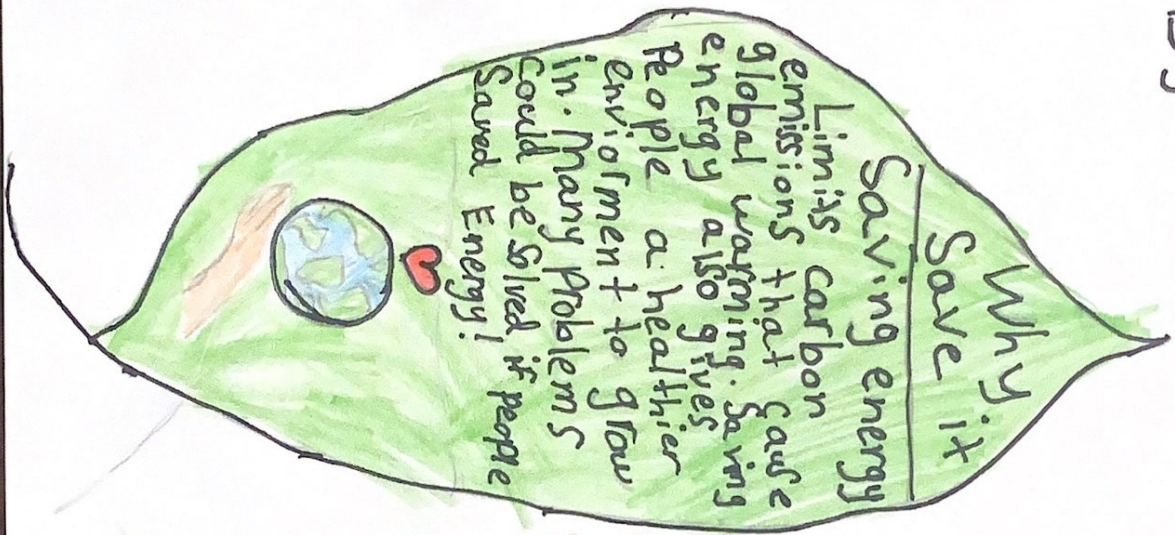 Why
Save it
Saving energy
Limits carbon
emissions that cause
global warming. Saving
energy also gives
People a healthier
enviorment to grow
in. Many Problems
Could be Solved if people
Saved Energy!